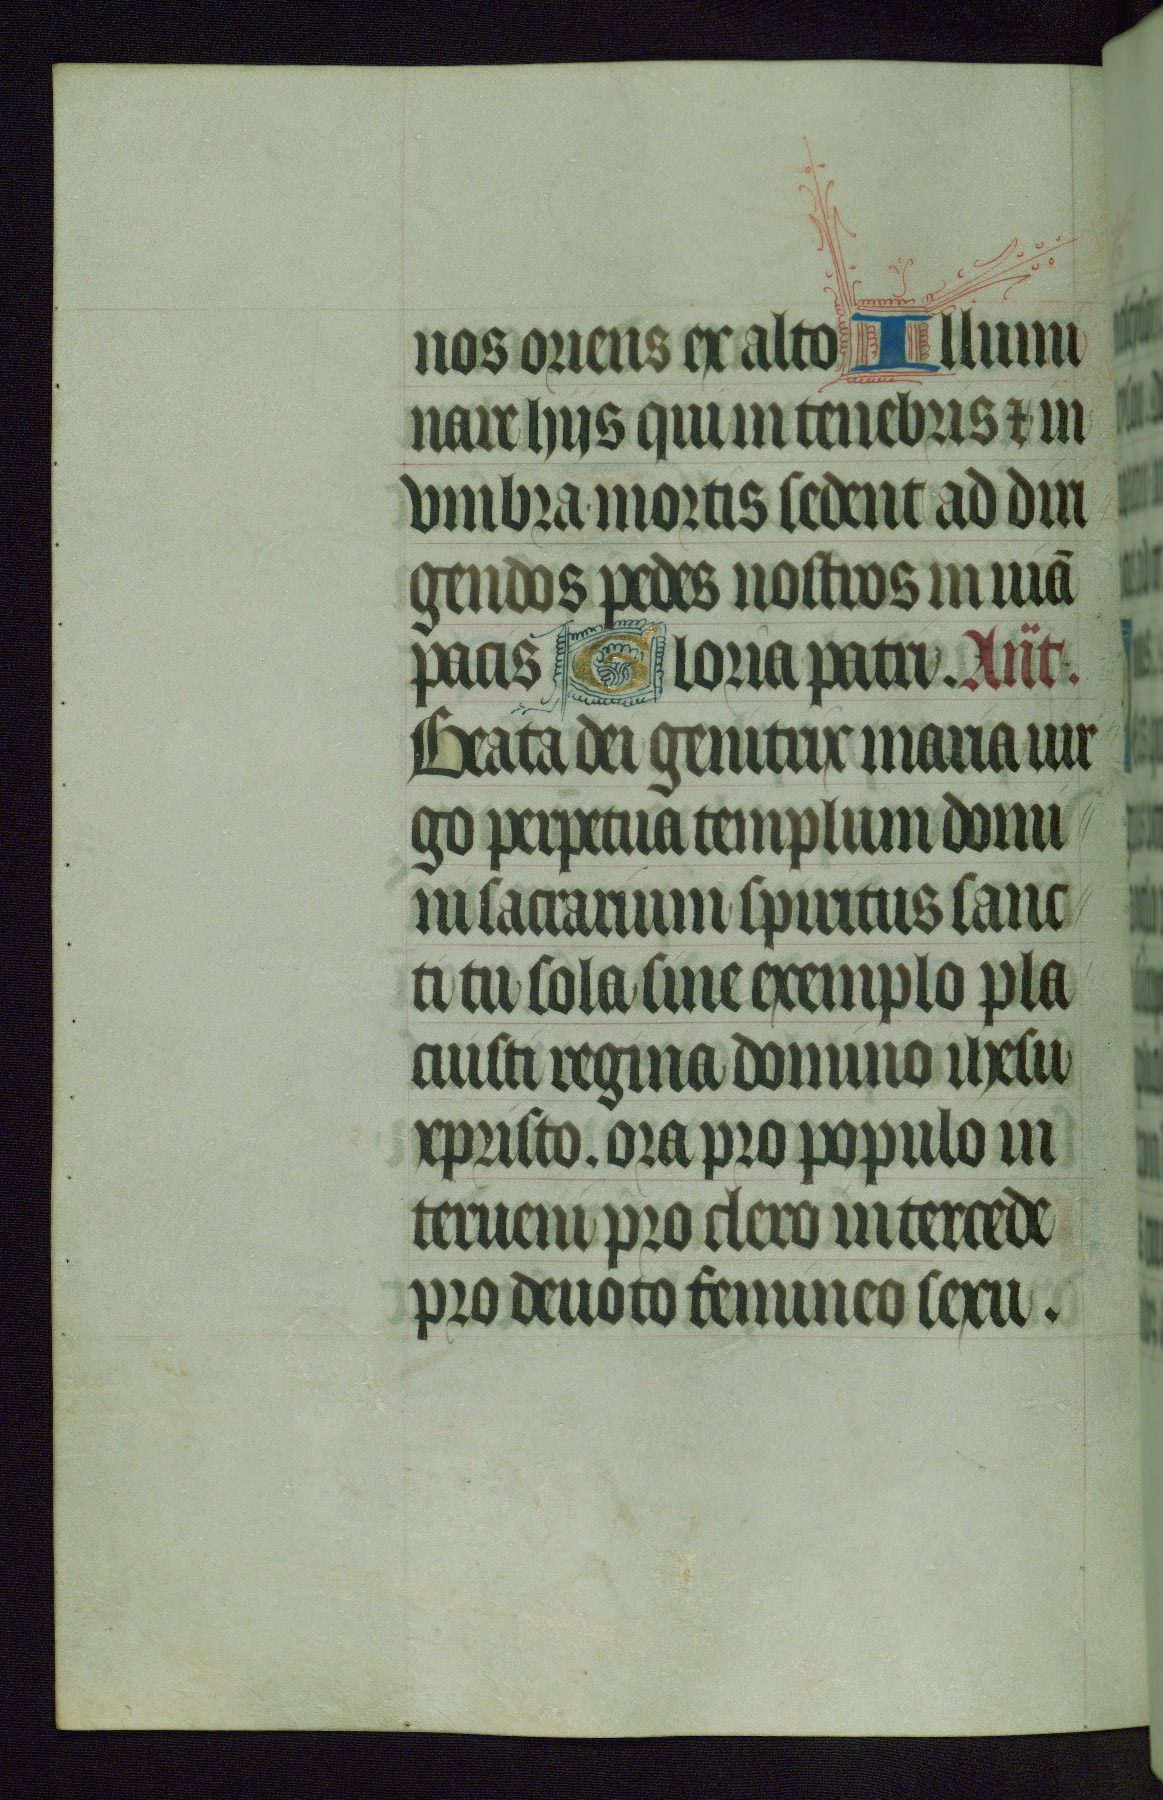 nos oriens ex alto Illumi
nare hijs qui in tenebris ⁊ in
vmbra mortis sedent ad diri
gendos pedes nostros in uiā
pacis Gloria patri. Añt.
Beata dei genitrix maria uir
go perpetua templum domi
ni sacrarium spiritus sanc
ti tu sola sine exemplo pla
cuisti regina domino ihesu
xpristo. ora pro populo in
terueni pro clero intercede
pro deuoto femineo sexu.